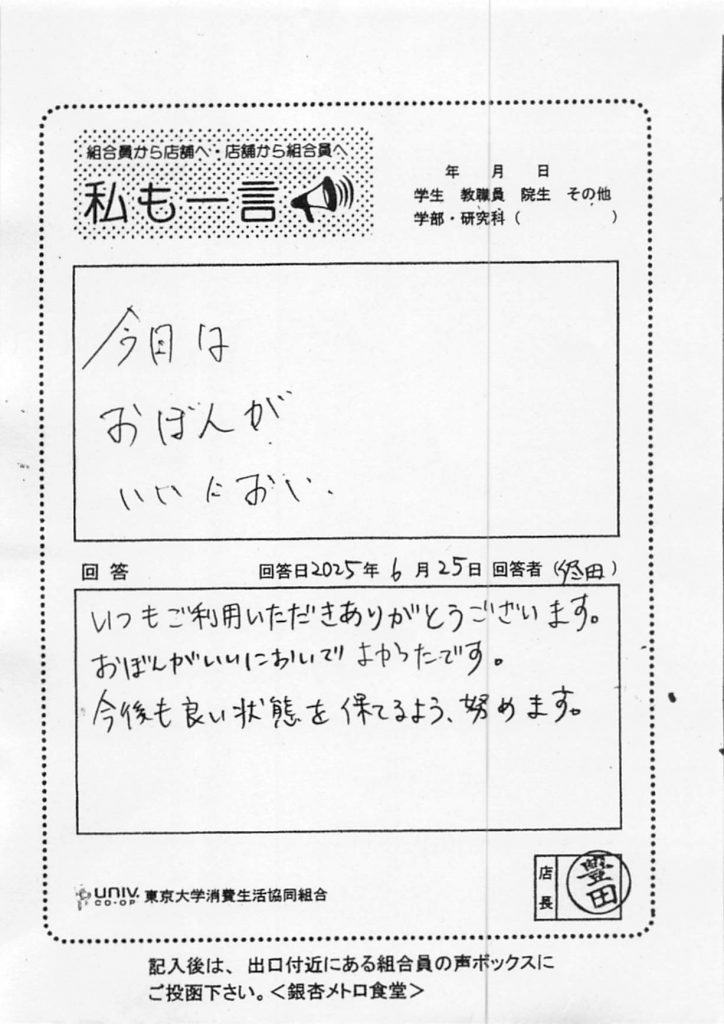 組合員から店舗へ・店舗から組合員へ
私も一言
年 月 日
学生 教職員 院生 その他
学部・研究科( )
今日は
おぼんが
いいにおい.
回答 回答日2025年6月25日 回答者( 田)
いつもご利用いただきありがとうございます。
おぼんがいいにおいでよかったです。
今後も良い状態を保てるよう、努めます。
UNIV. CO-OP 東京大学消費生活協同組合
店長 豊田
記入後は、出口付近にある組合員の声ボックスに
ご投函下さい。<銀杏メトロ食堂>